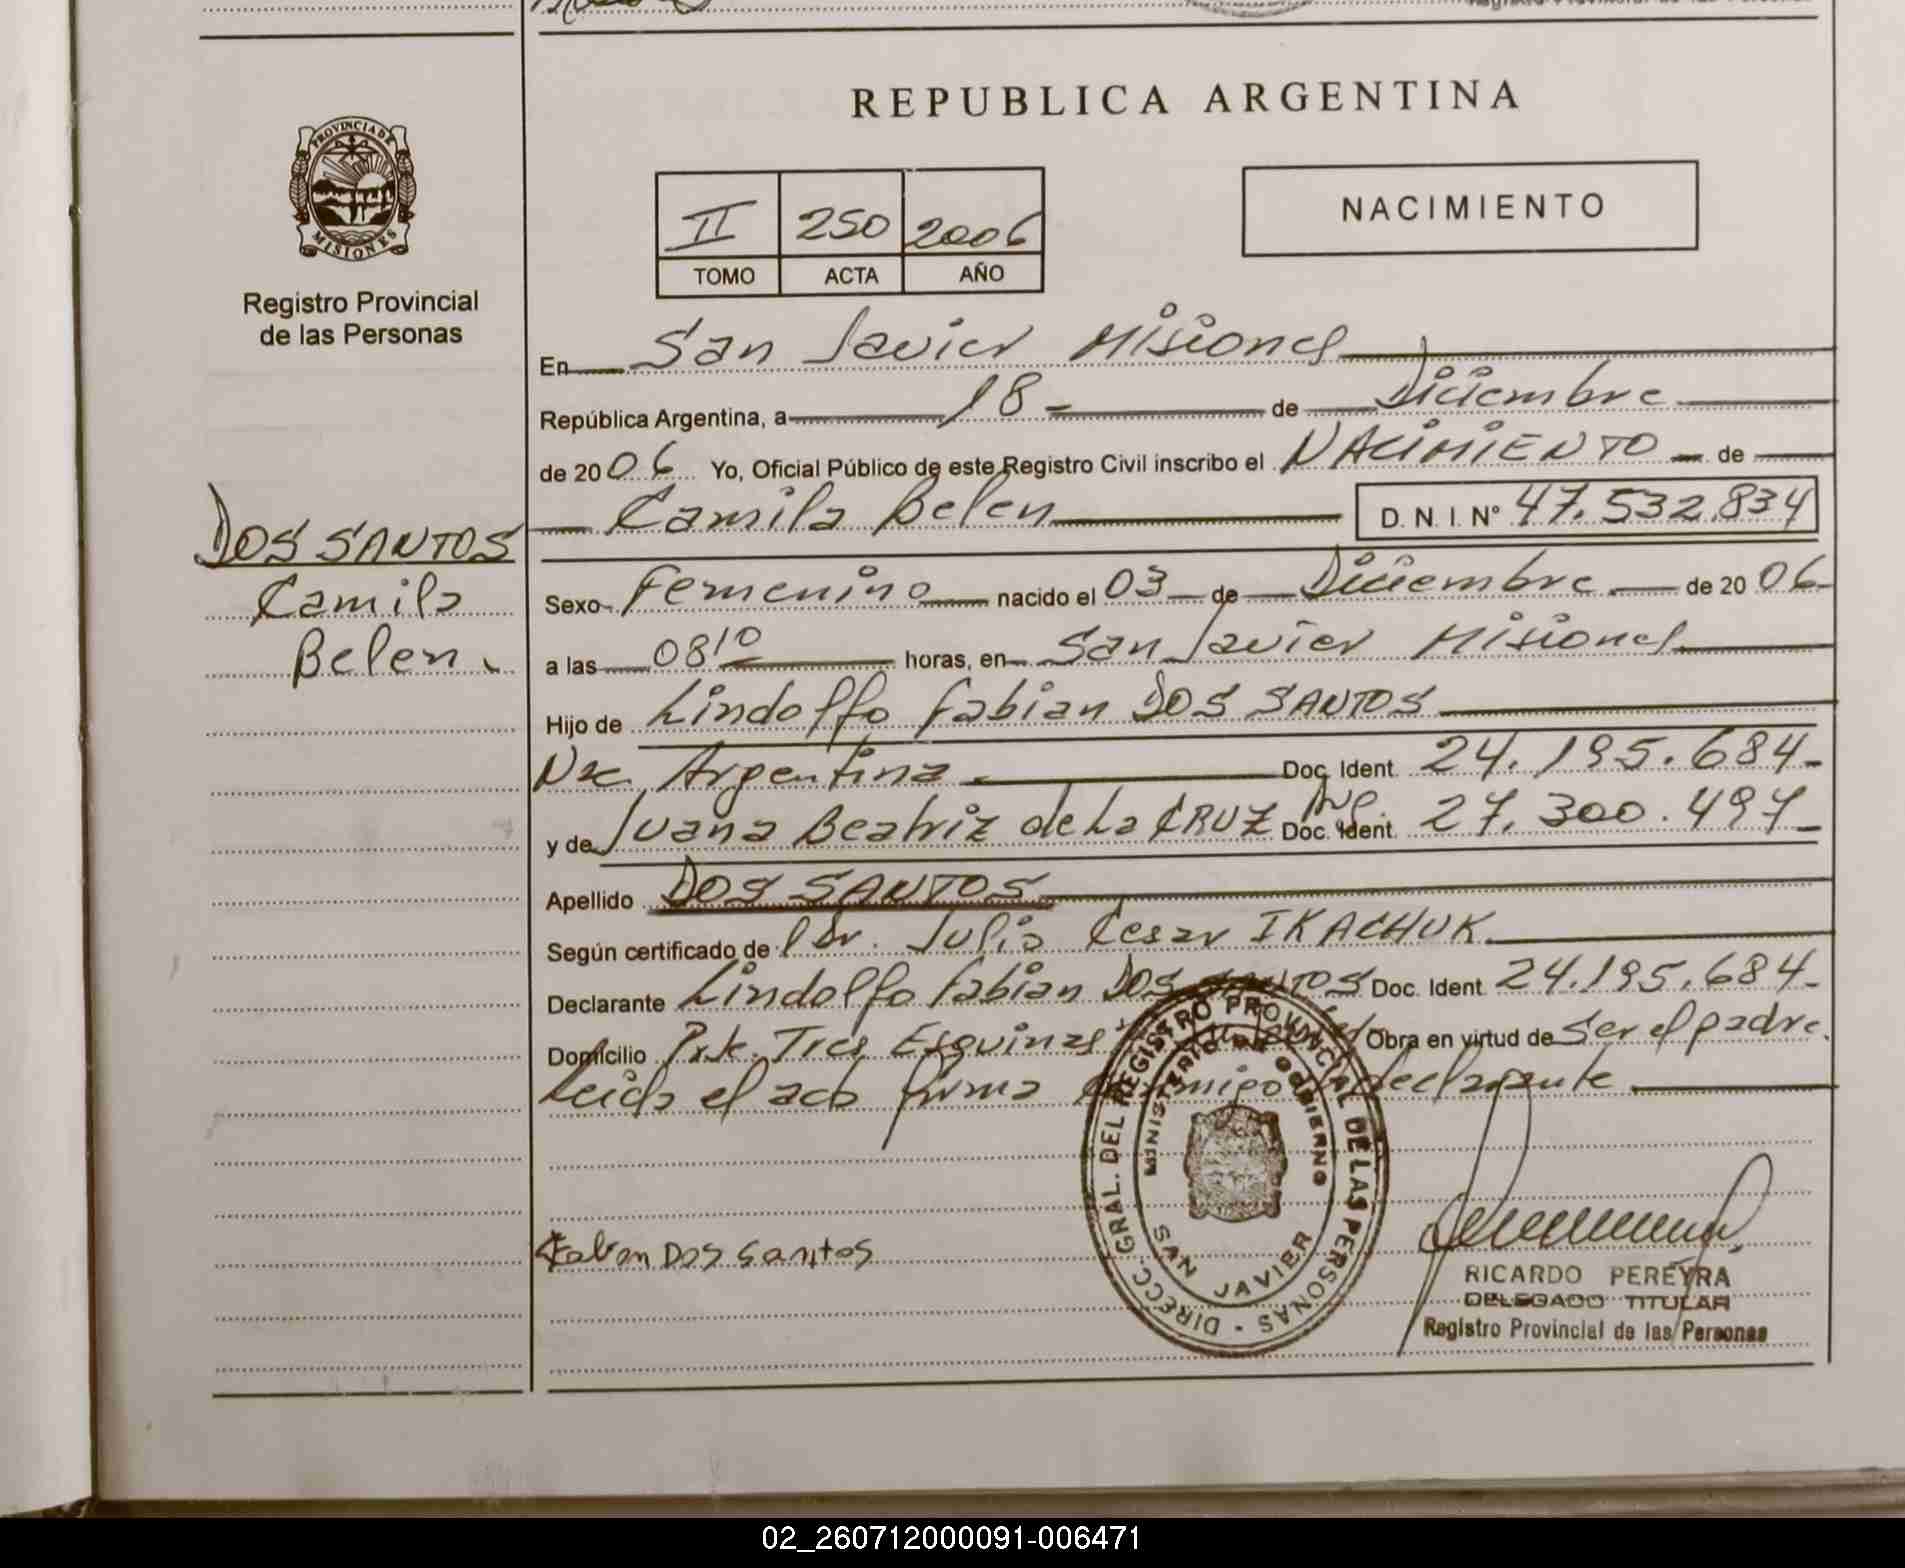 REPUBLICA ARGENTINA
PROVINCIA DE
MISIONES
Registro Provincial
de las Personas
II 250 2006
TOMO ACTA AÑO
NACIMIENTO
En San Javier Misiones
República Argentina, a 18 - de Diciembre
de 2006 Yo, Oficial Público de este Registro Civil inscribo el NACIMIENTO de
Camila Belen D. N. I. N° 47.532.834
DOS SANTOS
Camila
Belen.
Sexo Femenino nacido el 03 de Diciembre de 2006
a las 08 10 horas, en San Javier Misiones
Hijo de Lindolfo Fabian DOS SANTOS
Nac. Argentina Doc. Ident. 24.195.684
y de Juana Beatriz de La CRUZ Doc. Ident. 27.300.497
Apellido DOS SANTOS
Según certificado de Dr. Julio Cesar IKACHUK
Declarante Lindolfo Fabian DOS SANTOS Doc. Ident. 24.195.684
Domicilio Pje. Tres Esquinas Obra en virtud de Ser el padre.
Leida el acta firma conmigo declarante
DIRECC. GRAL. DEL REGISTRO PROVINCIAL DE LAS PERSONAS -
MINISTERIO DE GOBIERNO
SAN JAVIER
Fabian Dos Santos
RICARDO PEREYRA
DELEGADO TITULAR
Registro Provincial de las Personas
02_260712000091-006471